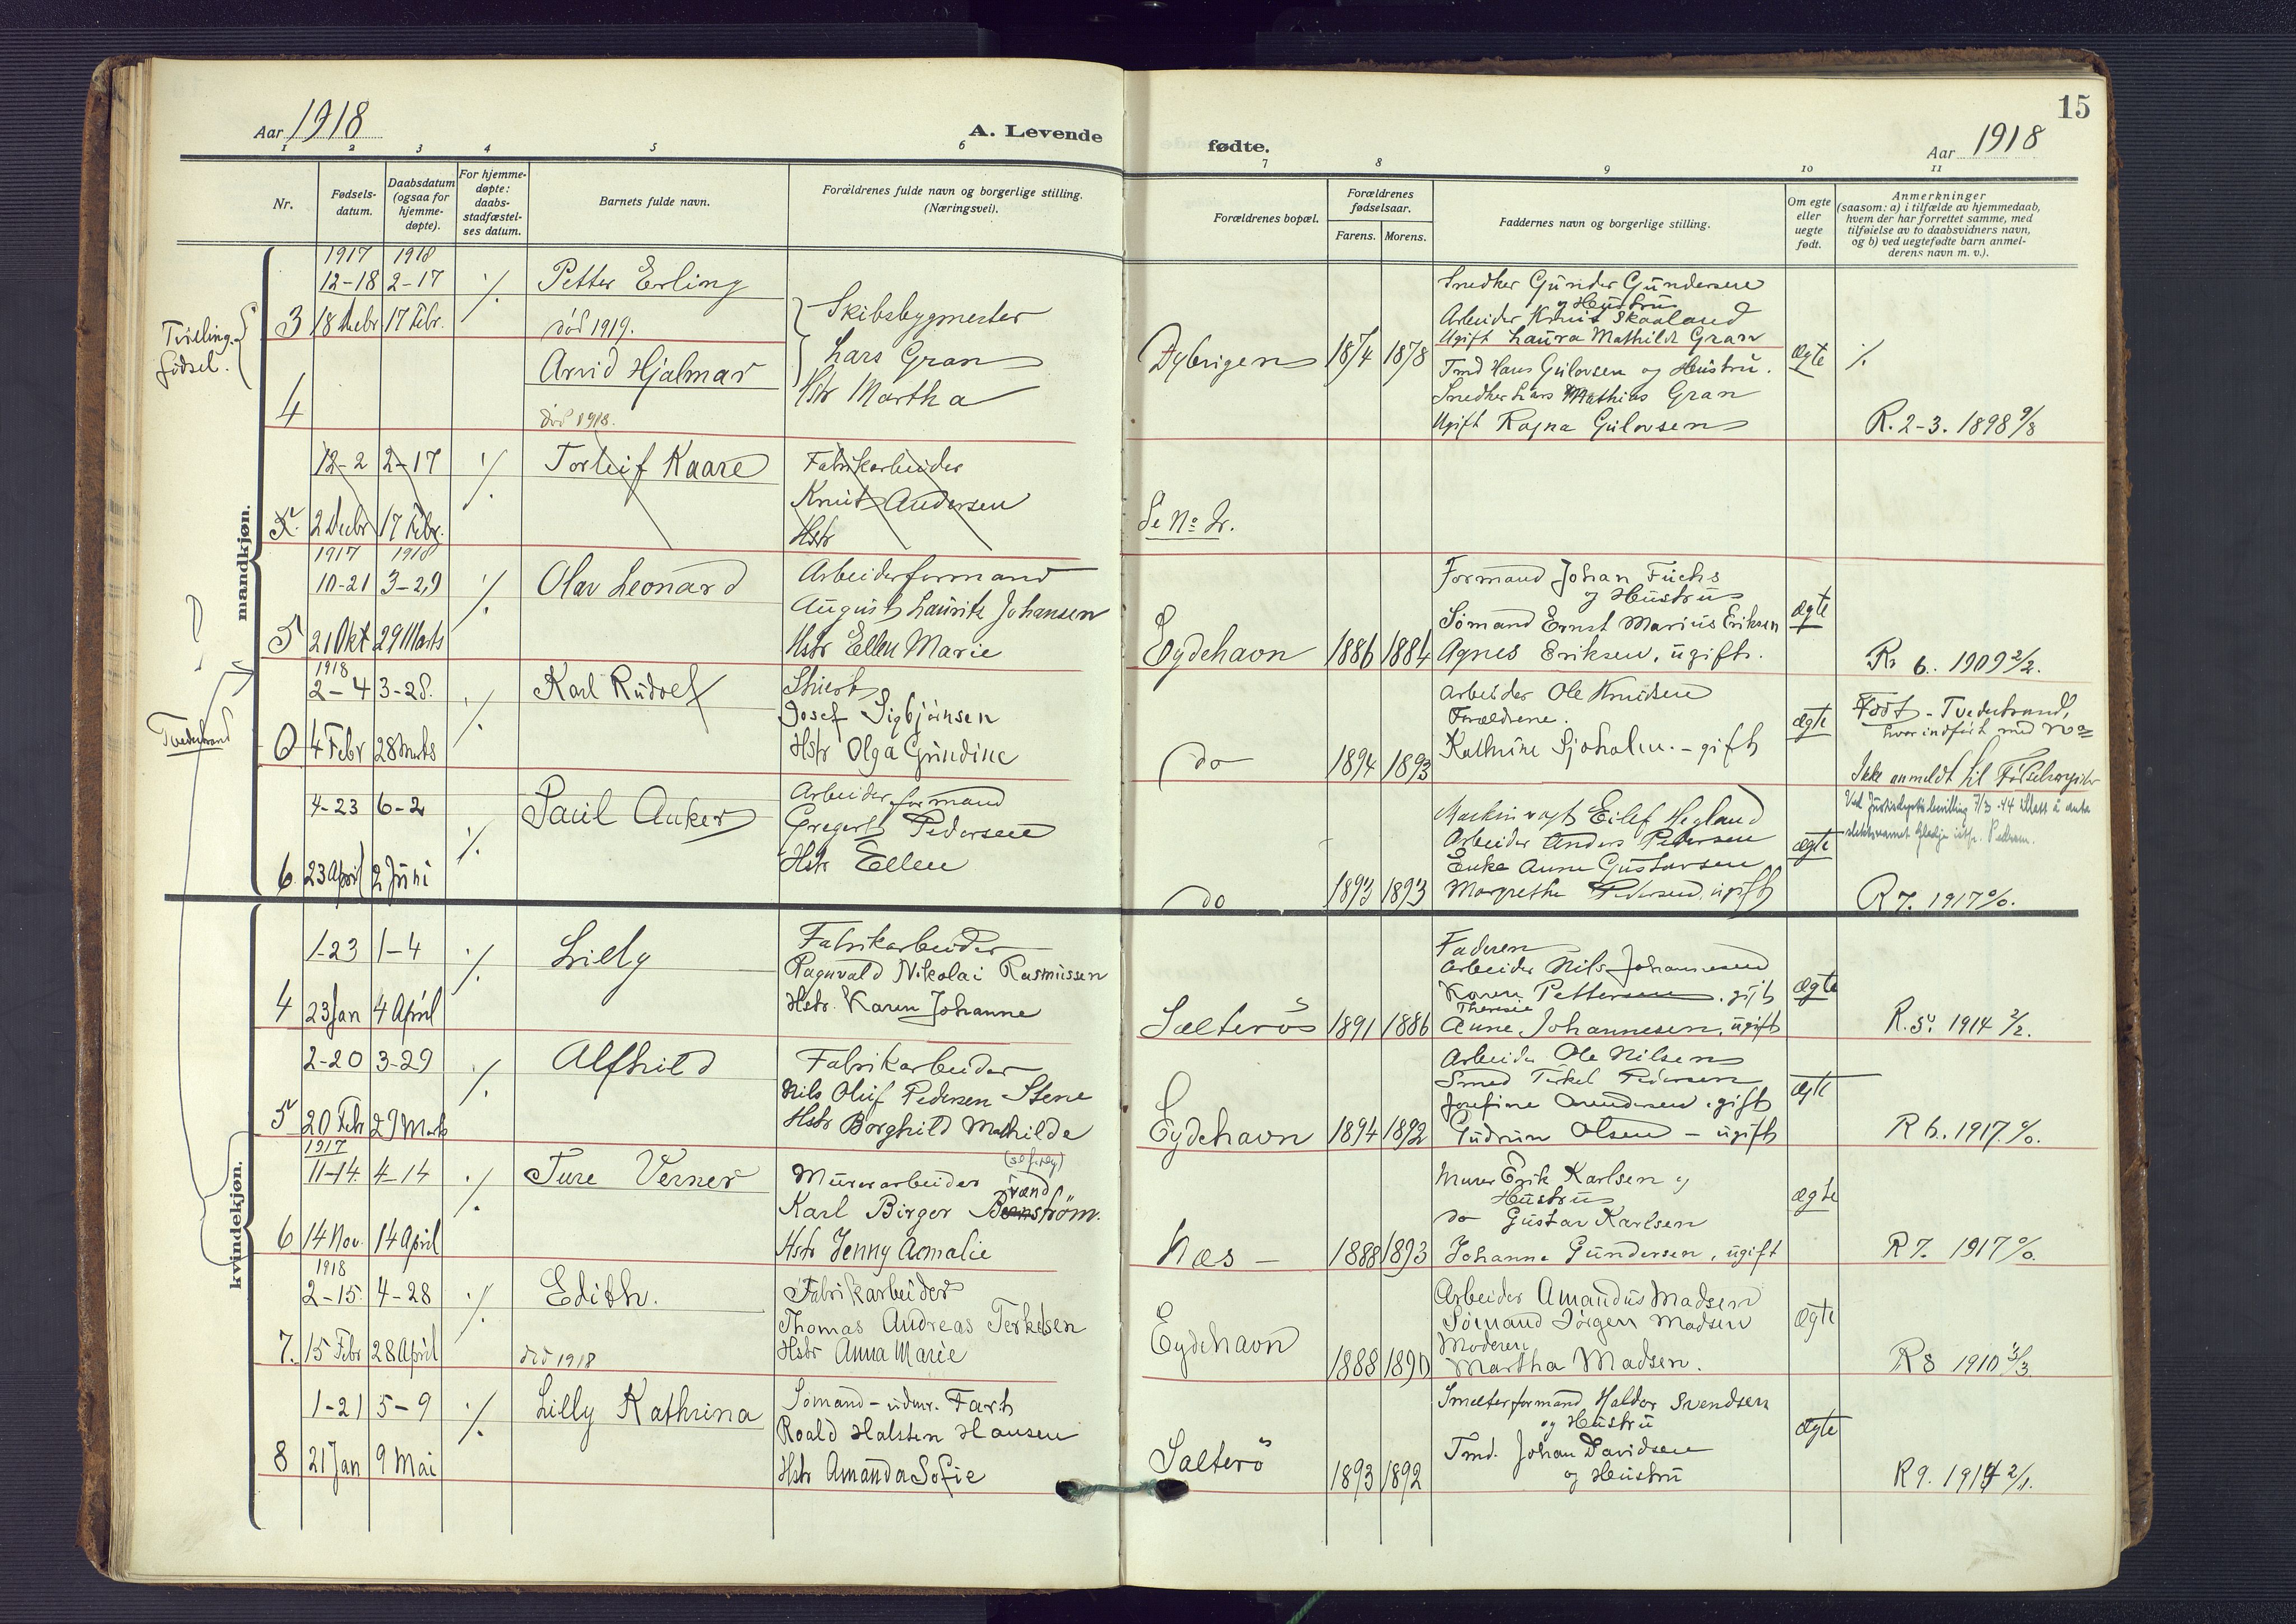 15
Aar 1918
A. Levende
fødte.
Aar 1918
1 2 3 4 5 6 7 8 9 10 11
Nr.
Fødsels-
datum.
Daabsdatum
(ogsaa for
hjemme-
døpte).
For hjemme-
døpte:
daabs-
stadfæstel-
ses datum.
Barnets fulde navn.
Forældrenes fulde navn og borgerlige stilling.
(Næringsvei).
Forældrenes bopæl.
Forældrenes
fødselsaar.
Farens. Morens.
Faddernes navn og borgerlige stilling.
Om egte
eller
uegte
født.
Anmerkninger
(saasom: a) i tilfælde av hjemmedaab,
hvem der har forrettet samme, med
tilføielse av to daabsvidners navn,
og b) ved uegtefødte barn anmel-
derens navn m. v.).
mandkjøn.
Tvilling-
fødsel.
1917 1918
12-18 2-17 ./. Petter Erling
3 18 Decbr 17 Febr. død 1919.
Skibsbygmester
Lars Gran
Hstr Martha
Arvid Hjalmar
4 død 1918.
1874 1878
Snedker Gunder Gundersen
og Hustru
Arbeider Knut Skaaland
Ugift Laura Mathilde Gran
Tmd Hans Gulovsen og Hustru.
Snedker Lars Mathias Gran
Ugift Ragna Gulovsen
Ægte ./.
R. 2-3. 1898 9/8
12-2 2-17 ./. Torleif Kaare
Fabrikarbeider
Knut Andersen
Hstr
5. 2 Decbr 17 Febr.
Se No 2.
1917 1918
10-21 3-29 ./. Olav Leonard
Arbeiderformand
August Lauritz Johansen
Hstr Ellen Marie
5 21 Okt 29 Marts
Eydehavn 1886 1884
Formand Johan Fuchs
og Hustru
Sømand Ernst Marius Eriksen
Agnes Eriksen, ugift.
Ægte
R. 6. 1909 2/2.
Tvedestrand
1918
2-4 3-28. ./. Karl Rudolf
Josef Sigbjørnsen
Hstr Olga Gundine
0 4 Febr 28 Marts
do 1894 1893
Arbeider Ole Knudsen
Forældrene.
Kathrine Sjøholm. - gift
Ægte
Født - Tvedestrand,
hvor indført med No
Ikke anmeldt til Fødselsregister
4-23 6-2 ./. Paul Anker
Arbeiderformand
Gregert Pedersen
Hstr Ellen
6. 23 April 2 Juni
do 1893 1893
Maskinvagt Eilef Hegland
Arbeider Anders Pedersen
Enke Anne Gustavsen
Margrethe Pedersen, ugift
Ægte
R 7. 1917 %.
kvindekjøn.
1-23 1-4 ./. Lilly
Fabrikarbeider
Ragnvald Nikolai Rasmussen
Hstr. Karen Johanne
4 23 Jan 4 April
Salterøs 1891 1886
Faderen
Arbeider Nils Johannesen
Karen Pettersen, gift
Theresie
Anne Johannesen, ugift
Ægte
R. 5. 1914 2/2.
2-20 3-29 ./. Alfhild
Fabrikarbeider
Nils Oluf Pedersen Stene
Hstr Borghild Mathilde
5 20 Febr 29 Marts
Eydehavn 1894 1892
Arbeider Ole Nilsen
Smed Terkel Pedersen
Josefine Arnesen, gift
Gudrun Olsen - ugift
Ægte
R 6. 1917 %.
1917
11-14. 4-14 ./. Ture Verner
Murerarbeider
Karl Birger Brandström.
Hstr Jenny Aomalie
6 14 Nov. 14 April
Næs - 1888 1893
Murer Erik Karlsen og
Hustru
do Gustav Karlsen
Johanne Gundersen, ugift
Ægte
R 7. 1917 %.
1918
2-15. 4-28 ./. Edith.
Fabrikarbeider
Thomas Andreas Terkelsen
Hstr Anna Marie
7. 15 Febr 28 April død 1918
Eydehavn 1888 1890
Arbeider Amandus Madsen
Sømand Jörgen Madsen
Moderen
Martha Madsen.
Ægte
R 8 1910 3/3.
1-21 5-9 ./. Lilly Kathrina
Sømand - udenr. Fart
Roald Halsten Hansen
Hstr Amanda Sofie
8 21 Jan 9 Mai
Salterø 1893 1892
Smelterformand Haldor Svendsen
og Hustru
Tmd. Johan Davidsen
og Hustru
Ægte
R 9. 1914 2/1.